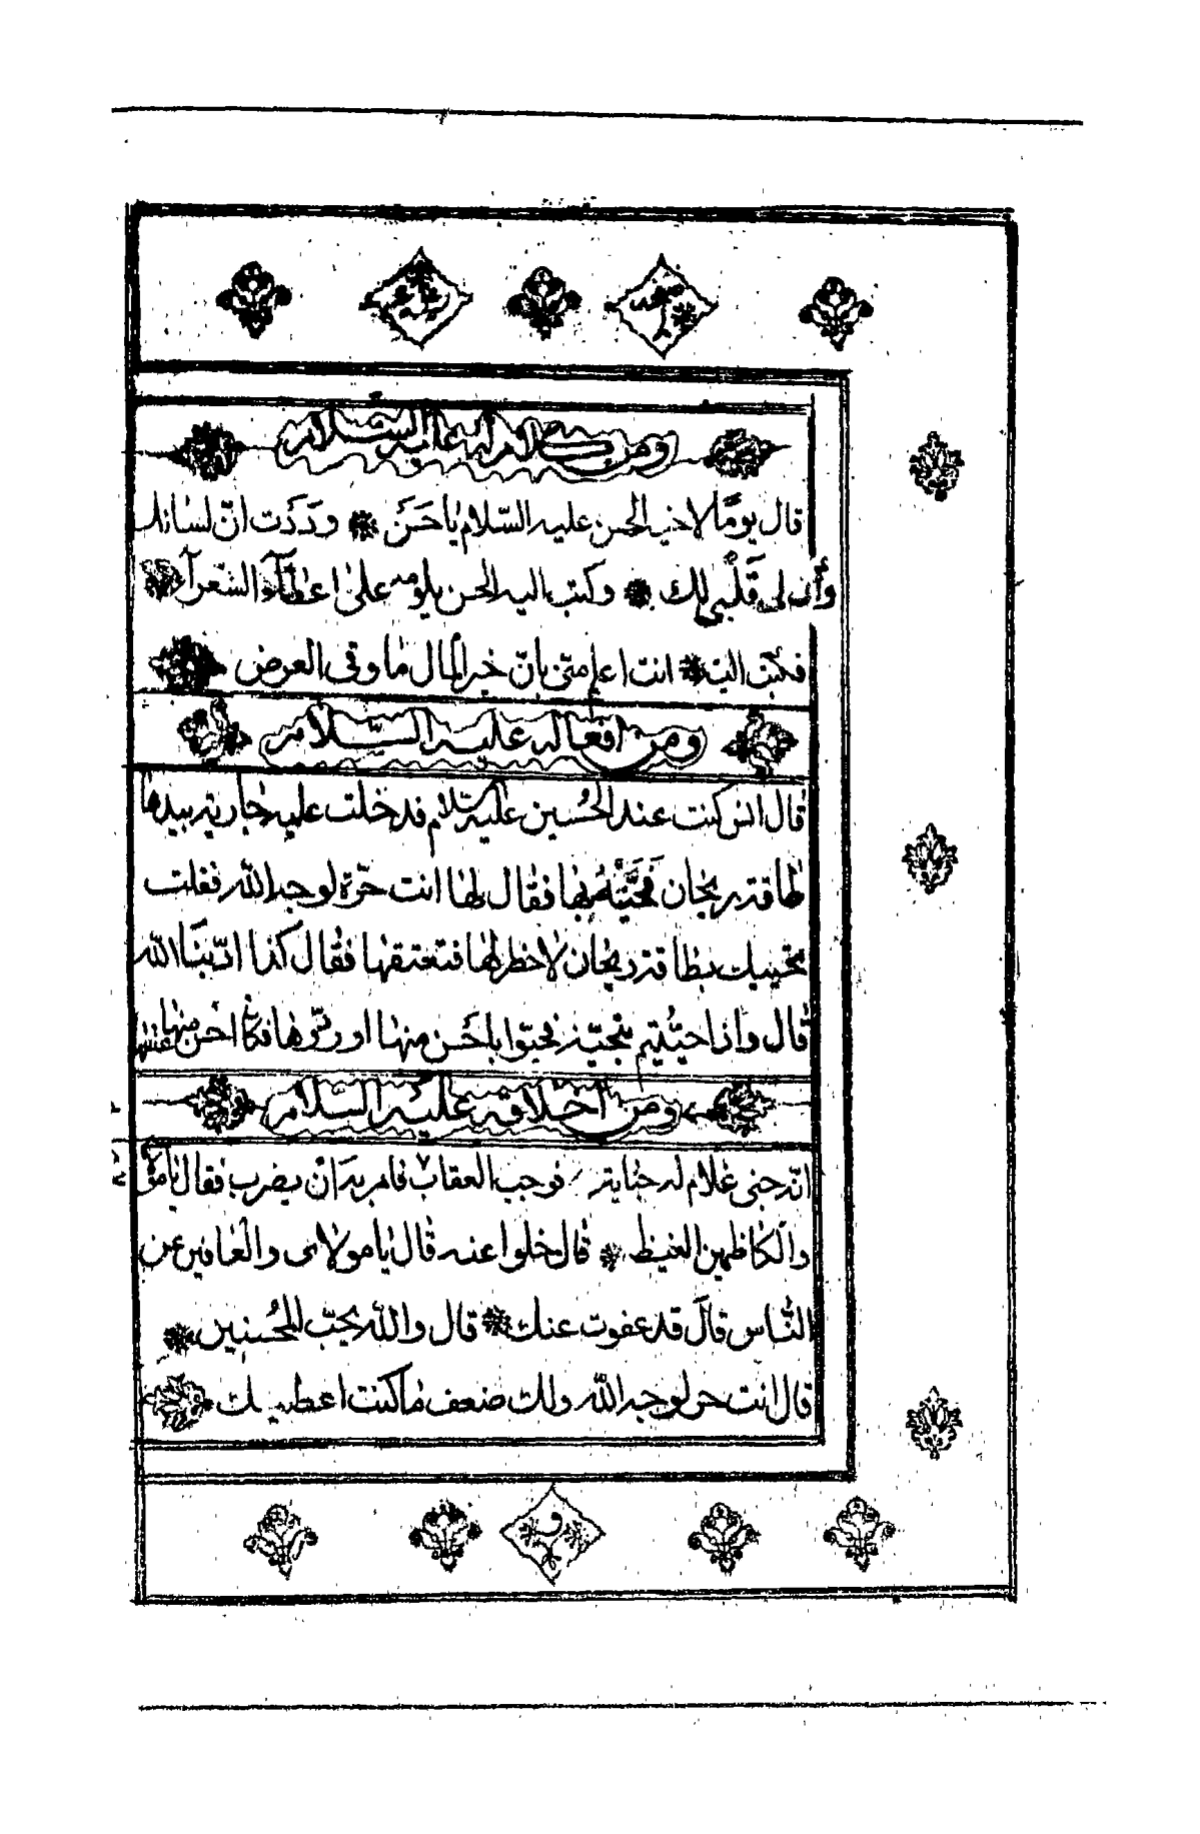 ومن كلامه عليه السلام
قال يومًا لاخيه الحسن عليه السّلام يا حَسَن وددَت انّ لسانك
وأن لى قَلْبى لك وكتب اليه الحسن يلومه على اعطآء الشّعرآ
فكتب اليه انت اعلم منّى بانّ خير المال ما وقى العرض
ومن افعاله عليه السّلام
قال انس كنت عند الحُسين عليه السّلام فدخلت عليه جارية بيدها
طاقة ريحان فحيّته بها فقال لها انت حرّة لوجه الله فقلت
تحييك بطاقة ريحان لا خطر لها فتعتقها فقال كذا ادّبنَا الله
قال واذا حيّيتم بتحيّة فحيّوا باحسَن منها او ردّوها فكان احسن منها عتقها
ومن اخلاقه عليه السّلام
انّه جنى غلام له جناية توجب العقاب فامر به اَنْ يضرب فقال يا مولاى
والكاظمين الغيظ قال خلوا عنه قال يا مولاى والعافين عن
النّاس قالَ قد عفوت عنك قال والله يحبّ المحُسنين
قال انت حر لوجه الله ولك ضعف ما كنت اعطيك